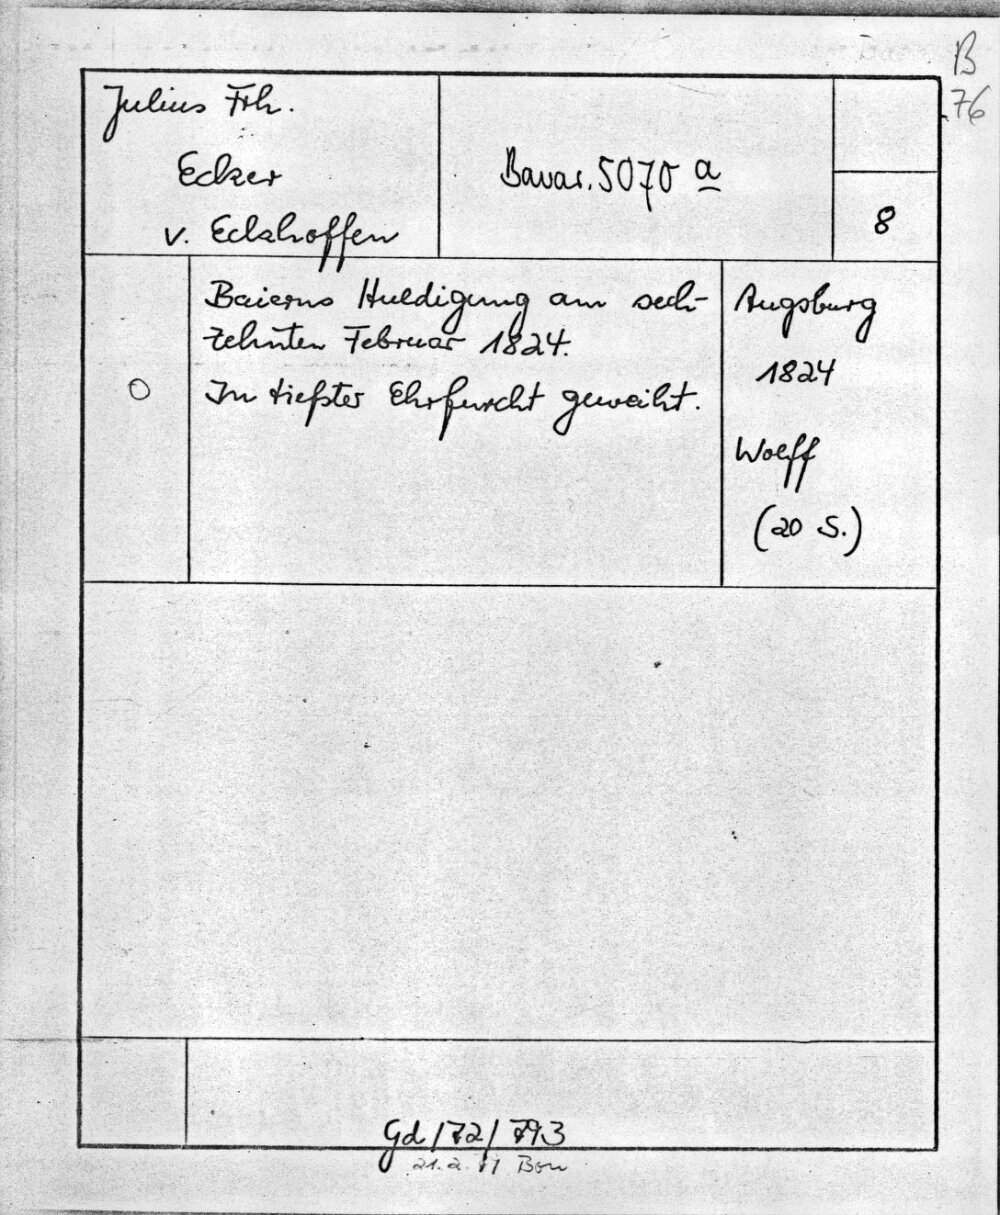 B
76
Julius Frh.
Ecker
v. Eckhoffen
Bavar. 5070 a
8
Baierns Huldigung am sech-
zehnten Februar 1824.
In tiefster Ehrfurcht geweiht.
O
Augsburg
1824
Wolff
(20 S.)
Gd/72/793
21.2.